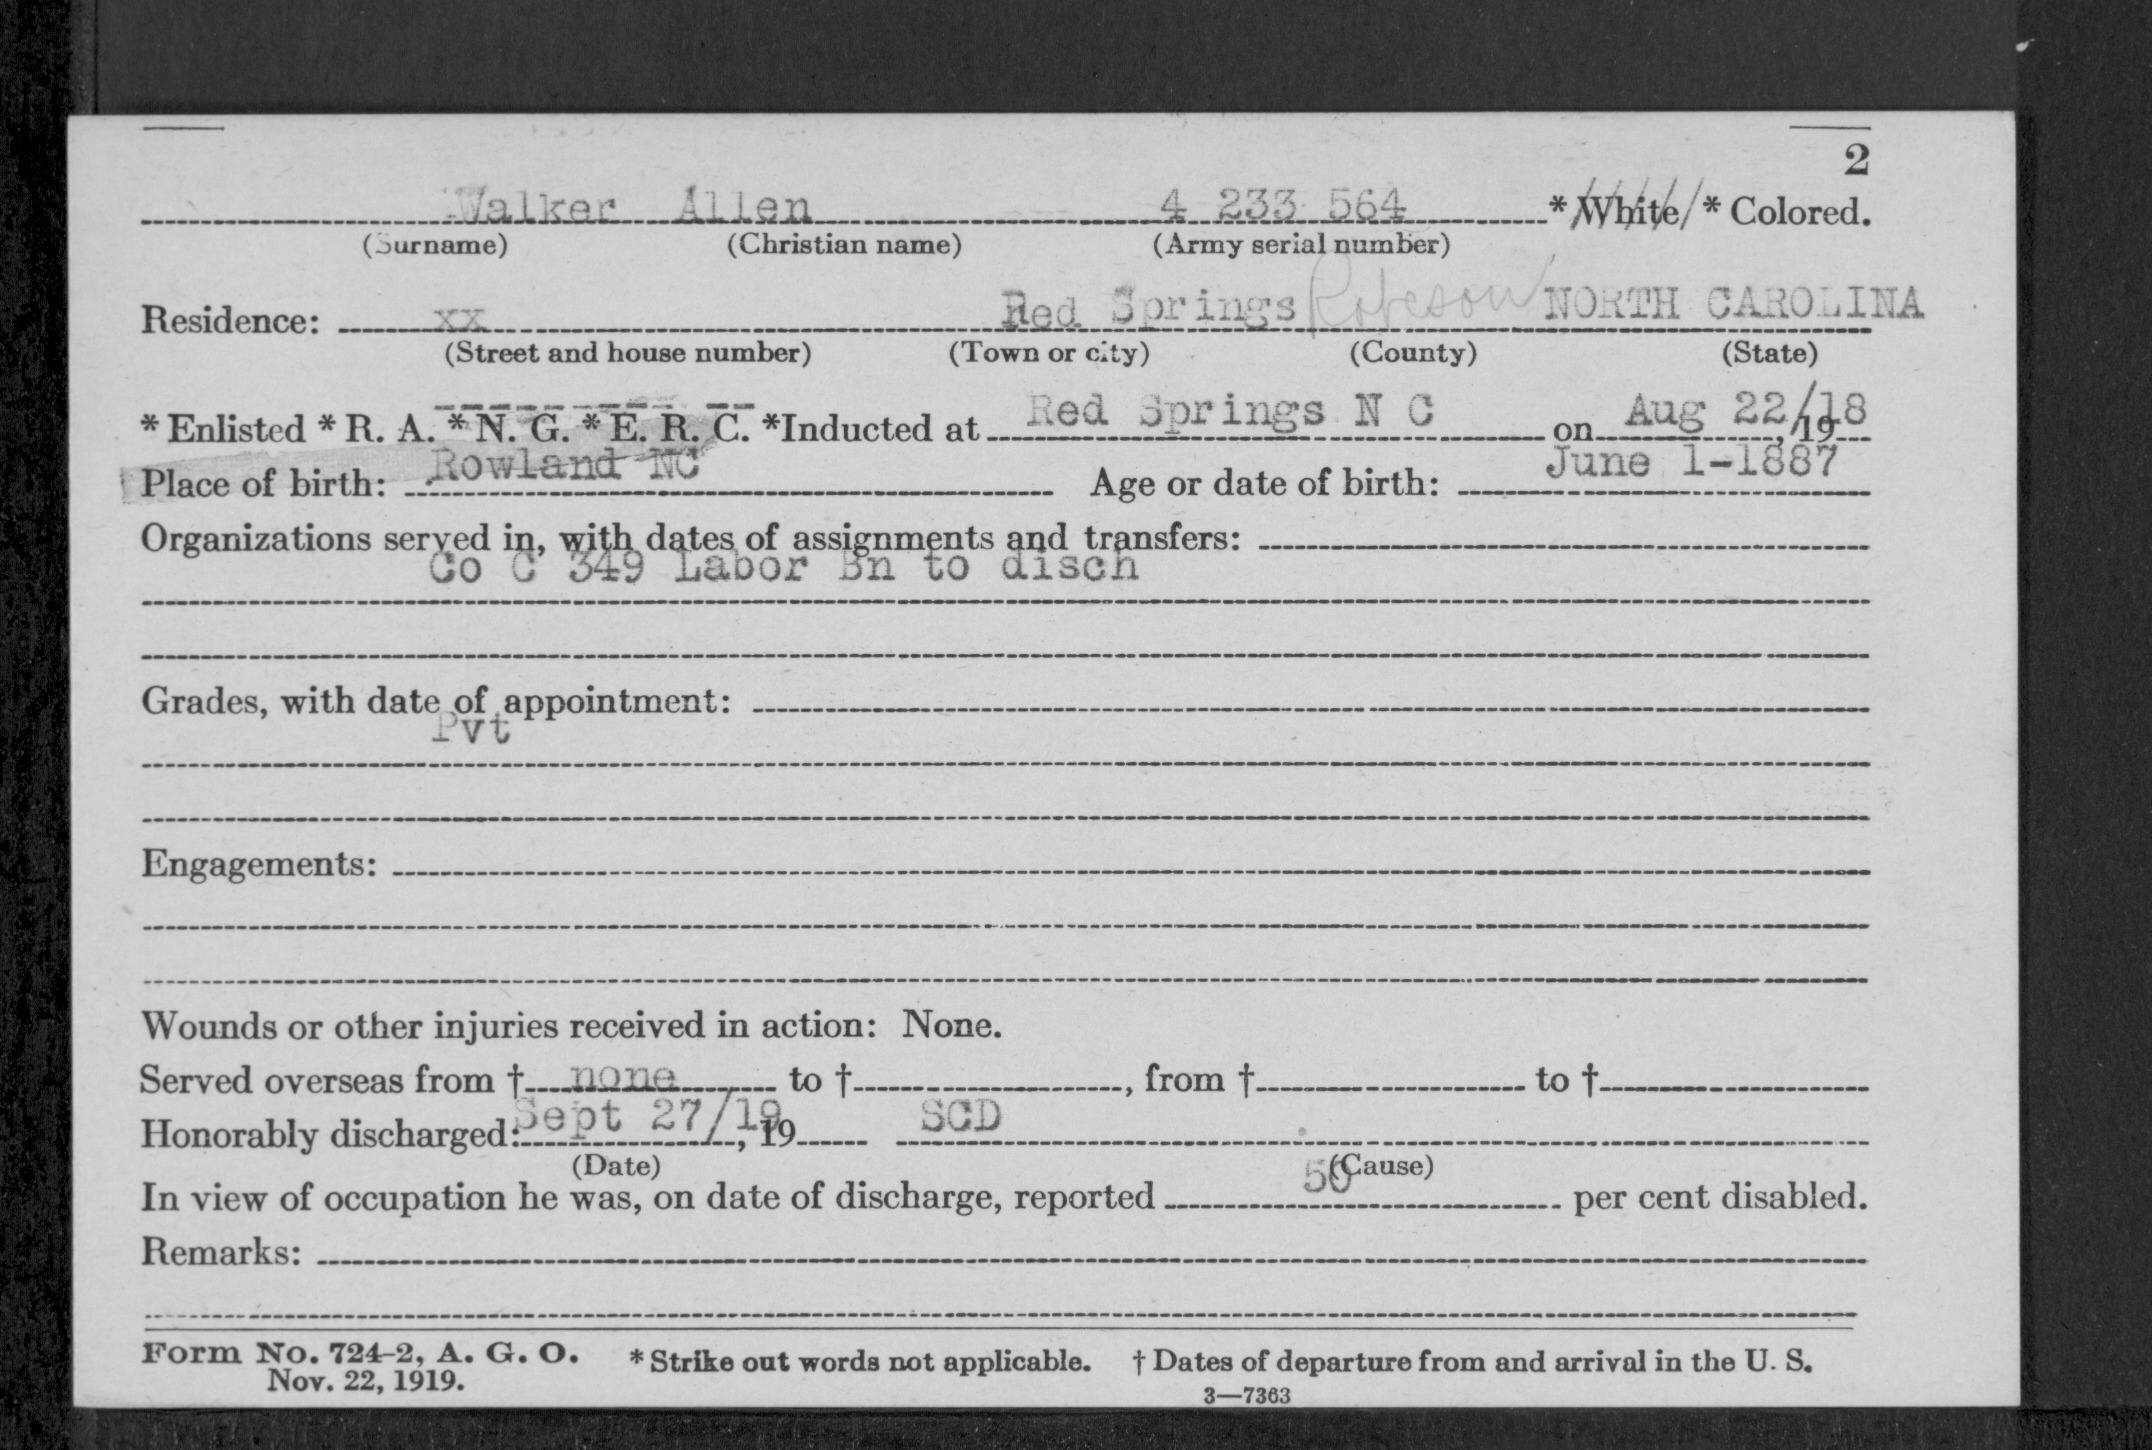 2
Walker Allen 4 233 564 * White * Colored.
(Surname) (Christian name) (Army serial number)
Residence: xx Red Springs Robeson NORTH CAROLINA
(Street and house number) (Town or city) (County) (State)
* Enlisted * R. A. * N. G. * E. R. C. *Inducted at Red Springs N C on Aug 22/18, 19
Place of birth: Rowland NC Age or date of birth: June 1-1887
Organizations served in, with dates of assignments and transfers:
Co C 349 Labor Bn to disch
Grades, with date of appointment:
Pvt
Engagements:
Wounds or other injuries received in action: None.
Served overseas from † none to †, from † to †
Honorably discharged: Sept 27/19, 19 SCD
(Date) (Cause)
In view of occupation he was, on date of discharge, reported 50 per cent disabled.
Remarks:
Form No. 724-2, A. G. O. * Strike out words not applicable. † Dates of departure from and arrival in the U. S.
Nov. 22, 1919.
3—7363